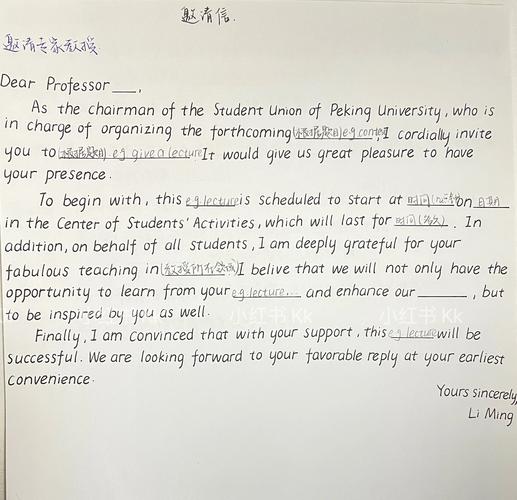 邀请信.
邀请专家教授.
Dear Professor ___,
As the chairman of the Student Union of Peking University, who is
in charge of organizing the forthcoming (根据题目) eg contest, I cordially invite
you to (根据题目) eg give a lecture It would give us great pleasure to have
your presence.
To begin with, this eg lecture is scheduled to start at 时间 on 日期
in the Center of Students' Activities, which will last for 时间 (多久). In
addition, on behalf of all students, I am deeply grateful for your
fabulous teaching in (教授所在领域) I belive that we will not only have the
opportunity to learn from your eg lecture... and enhance our ______, but
to be inspired by you as well.
小红书 Kk 小红书 Kk
Finally, I am convinced that with your support, this eg lecture will be
successful. We are looking forward to your favorable reply at your earliest
convenience.
Yours sincerely,
Li Ming